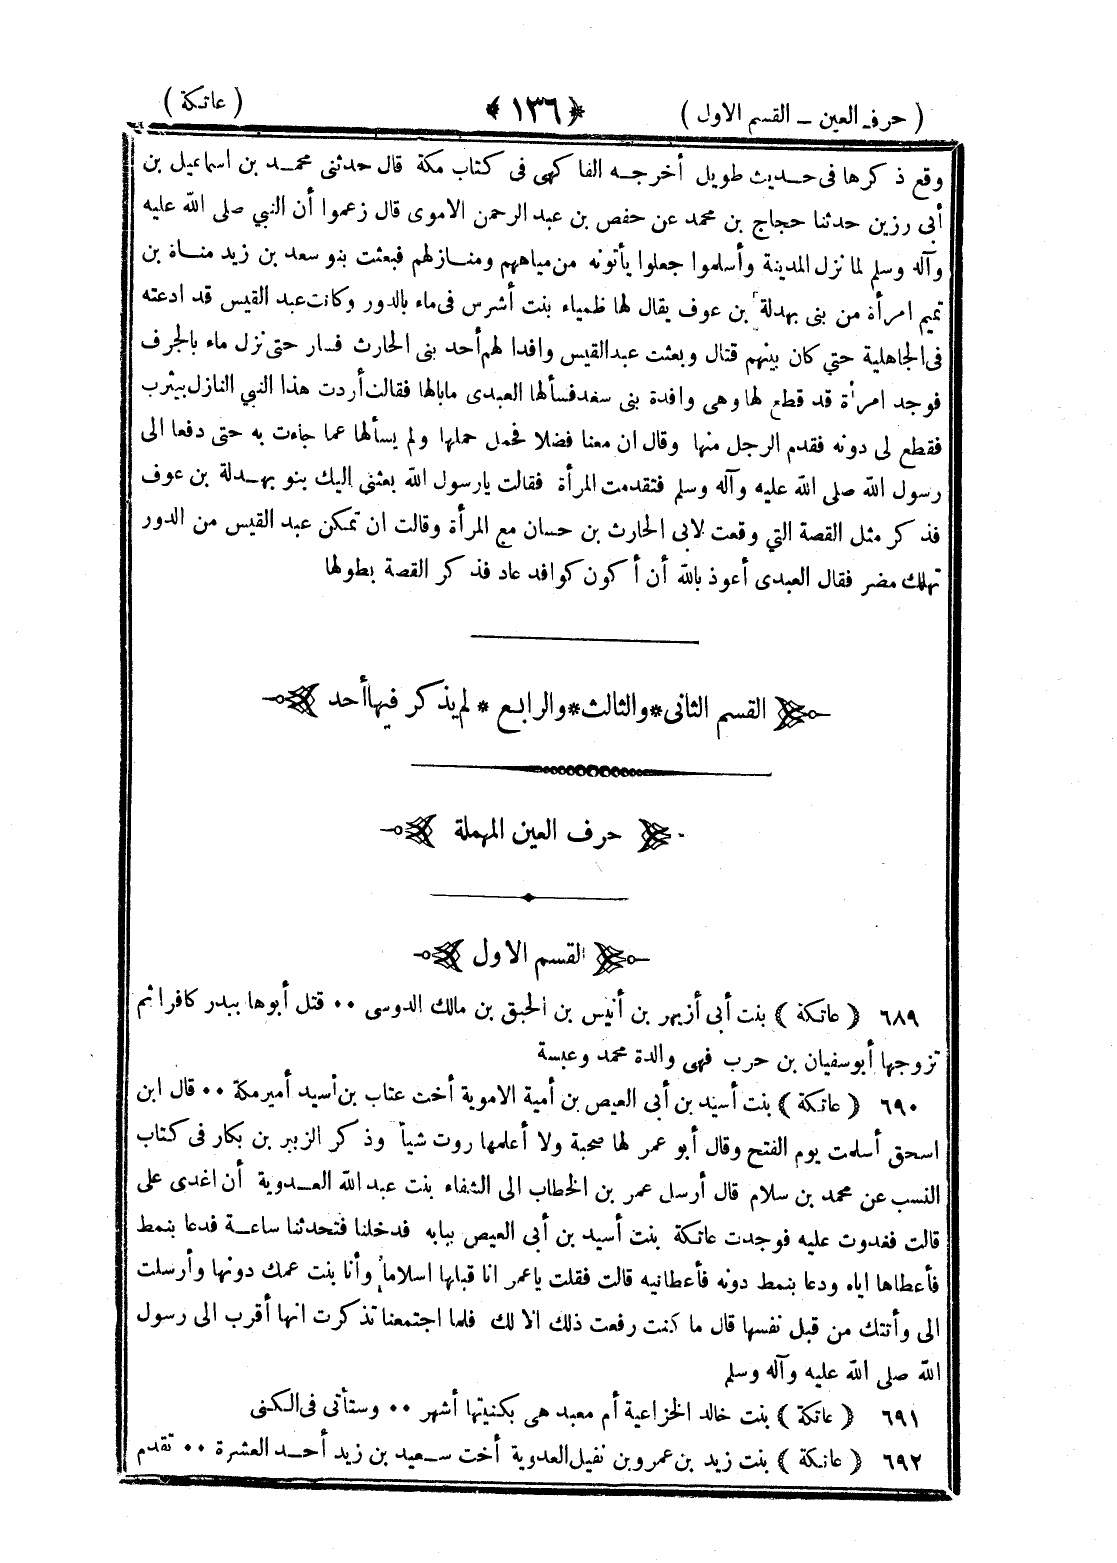 ( حرف العين — القسم الاول ) ﴿ ١٣٦ ﴾ ( عاتكة )
وقع ذكرها فى حديث طويل أخرجه الفاكهى فى كتاب مكة قال حدثنى محمد بن اسماعيل بن
أبى رزين حدثنا حجاج بن محمد عن حفص بن عبد الرحمن الاموى قال زعموا أن النبي صلى الله عليه
وآله وسلم لما نزل المدينة وأسلموا جعلوا يأتونه من مياههم ومنازلهم فبعثت بنو سعد بن زيد مناة بن
تميم امرأة من بنى بهدلة بن عوف يقال لها ظمياء بنت أشرس فى ماء بالدور وكانت عبد القيس قد ادعته
فى الجاهلية حتي كان بينهم قتال وبعثت عبد القيس وافدا لهم أحد بنى الحارث فسار حتى نزل ماء بالجرف
فوجد امرأة قد قطع لها وهى وافدة بنى سعد فسألها العبدى مابالها فقالت أردت هذا النبي النازل بيثرب
فقطع لى دونه فقدم الرجل منها وقال ان معنا فضلا فحمل حملها ولم يسألها عما جاءت به حتى دفعا الى
رسول الله صلى الله عليه وآله وسلم فتقدمت المرأة فقالت يارسول الله بعثني اليك بنو بهدلة بن عوف
فذكر مثل القصة التي وقعت لابى الحارث بن حسان مع المرأة وقالت ان تمكن عبد القيس من الدور
تهلك مضر فقال العبدى أعوذ بالله أن أكون كوافد عاد فذكر القصة بطولها
القسم الثانى * والثالث * والرابع * لم يذكر فيها أحد
حرف العين المهملة
القسم الاول
٦٨٩ ( عاتكة ) بنت أبى أزيهر بن أنيس بن الحبق بن مالك الدوسى ٠٠ قتل أبوها ببدر كافرا ثم
تزوجها أبو سفيان بن حرب فهى والدة محمد وعبسة
٦٩٠ ( عاتكة ) بنت أسيد بن أبى العيص بن أمية الاموية أخت عتاب بن أسيد أمير مكة ٠٠ قال ابن
اسحق أسلمت يوم الفتح وقال أبو عمر لها صحبة ولا أعلمها روت شيأ وذكر الزبير بن بكار فى كتاب
النسب عن محمد بن سلام قال أرسل عمر بن الخطاب الى الشفاء بنت عبد الله العدوية أن اغدى على
قالت فغدوت عليه فوجدت عاتكة بنت أسيد بن أبى العيص ببابه فدخلنا فتحدثنا ساعة فدعا بنمط
فأعطاها اياه ودعا بنمط دونه فأعطانيه قالت فقلت ياعمر انا قبلها اسلاما وأنا بنت عمك دونها وأرسلت
الى وأتتك من قبل نفسها قال ما كنت رفعت ذلك الا لك فلما اجتمعنا تذكرت انها أقرب الى رسول
الله صلى الله عليه وآله وسلم
٦٩١ ( عاتكة ) بنت خالد الخزاعية أم معبد هى بكنيتها أشهر ٠٠ وستأتى فى الكنى
٦٩٢ ( عاتكة ) بنت زيد بن عمرو بن نفيل العدوية أخت سعيد بن زيد أحد العشرة ٠٠ تقدم